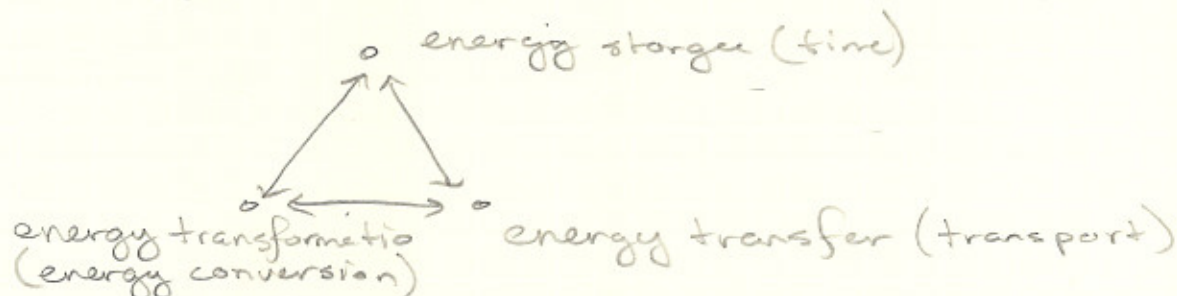 energy storgee (time)
energy transformatio
(energy conversion)
energy transfer (transport)